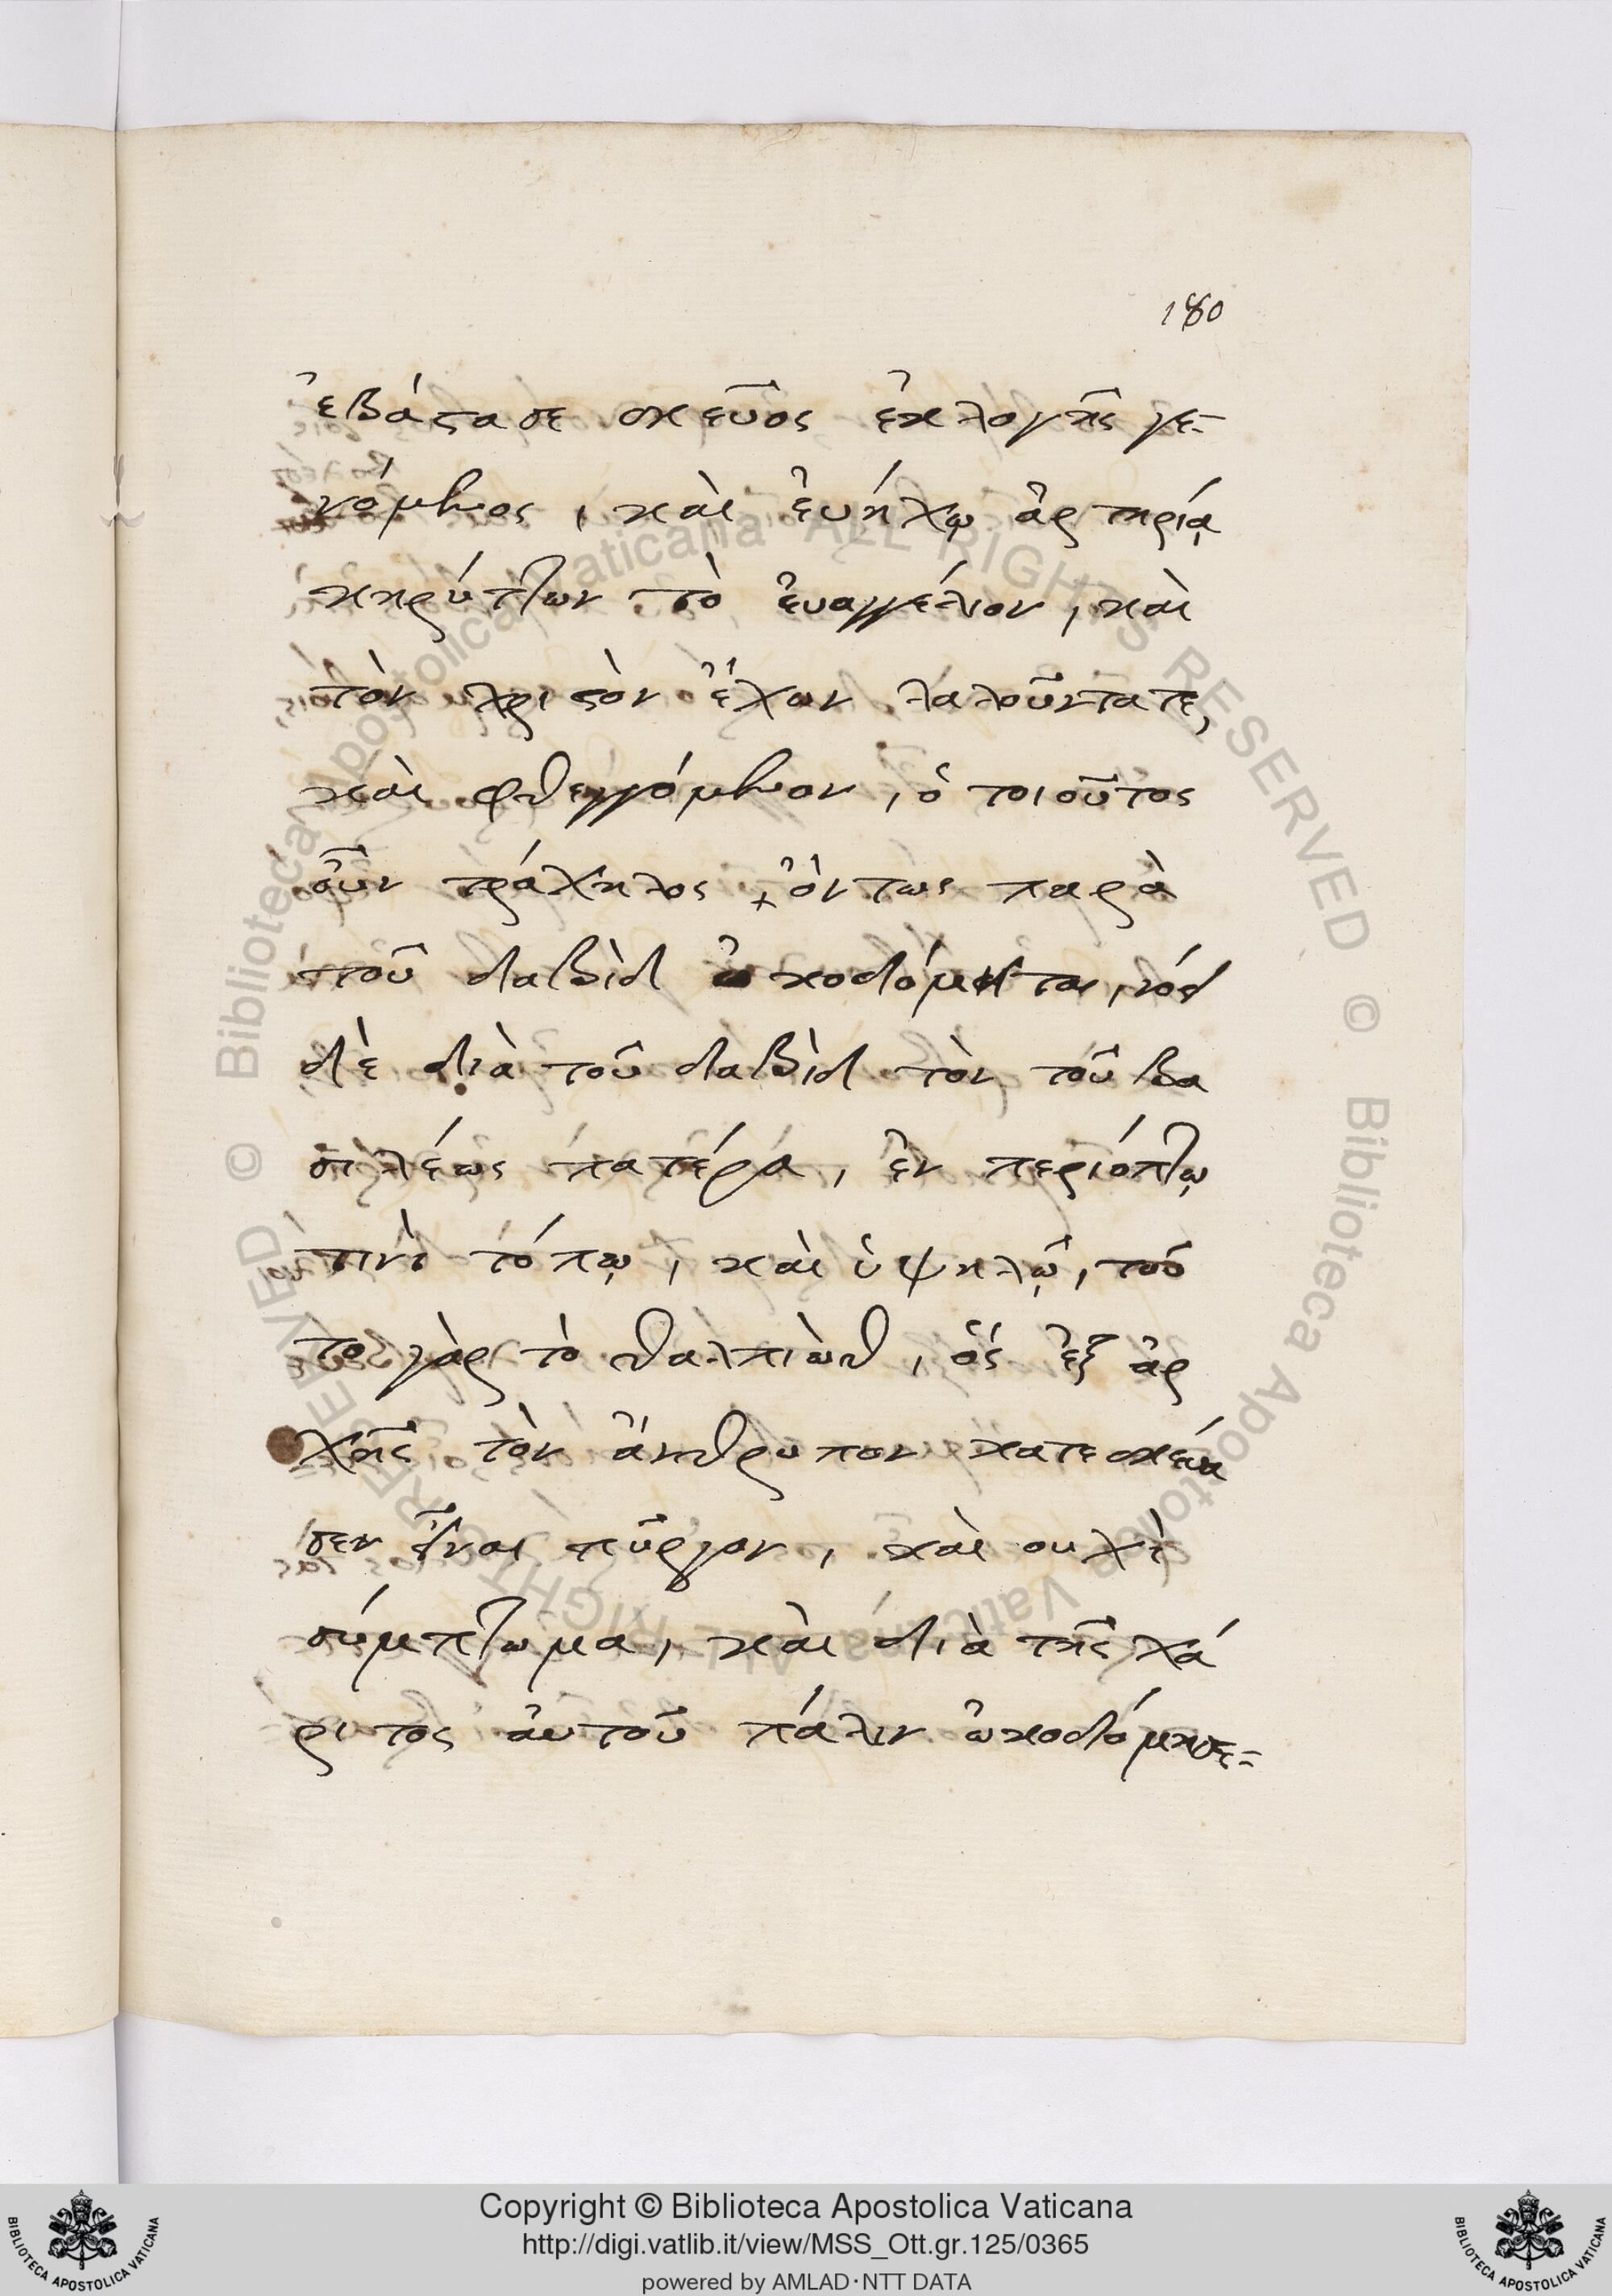 180
ἐβάστασε σκεῦος ἐκλογῆς γε-
νόμενος, καὶ ἐυήχῳ ἀρτηρίᾳ
κηρύττων τὸ ἐυαγγέλιον, καὶ
τὸν χριστὸν ἔχων λαλοῦντα τε,
καὶ φθεγγόμενον, ὁ τοιοῦτος
οὖν τράχηλος, ὄντως παρὰ
τοῦ δαβὶδ ὠκοδόμηται,
δὲ διὰ τοῦ δαβὶδ τὸν τοῦ βα
σιλέως πατέρα, ἐν περιόπτῳ
τινὶ τόπῳ, καὶ ὑψηλῷ, τοῦ
το γὰρ τὸ θαλπιὼθ, ὃς ἐξ ἀρ
χῆς τὸν ἄνθρωπον κατεσκέυα
σεν εἶναι πῦργον, καὶ ουχὶ
σύμπτωμα, καὶ διὰ τῆς χά
ριτος ἀυτοῦ πάλιν ὠκοδόμησε-
Copyright © Biblioteca Apostolica Vaticana
http://digi.vatlib.it/view/MSS_Ott.gr.125/0365
powered by AMLAD·NTT DATA
BIBLIOTECA APOSTOLICA VATICANA
BIBLIOTECA APOSTOLICA VATICANA
© Biblioteca Apostolica Vaticana ALL RIGHTS RESERVED
© Biblioteca Apostolica Vaticana ALL RIGHTS RESERVED